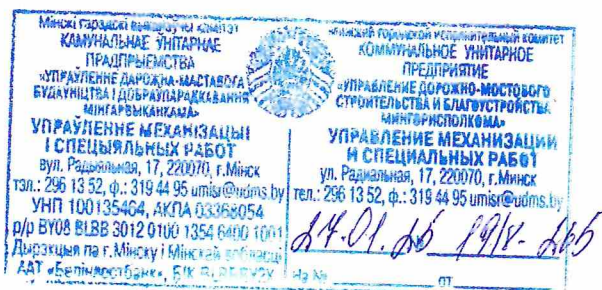 Мінскі гарадскі выканаўчы камітэт
КАМУНАЛЬНАЕ УНІТАРНАЕ
ПРАДПРЫЕМСТВА
«УПРАЎЛЕННЕ ДАРОЖНА-МАСТАВОГА
БУДАЎНІЦТВА І ДОБРАЎПАРАДКАВАННЯ
МІНГАРВЫКАНКАМА»
УПРАЎЛЕННЕ МЕХАНІЗАЦЫІ
І СПЕЦЫЯЛЬНЫХ РАБОТ
вул. Радыяльная, 17, 220070, г.Мінск
тэл.: 296 13 52, ф.: 319 44 95 umisr@udms.by
УНП 100135464, АКПА 03368054
р/р BY08 BLBB 3012 0100 1354 6400 1001
Дырэкцыя па г.Мінску і Мінскай вобласці
ААТ «Белінвестбанк», БІК
Минский городской исполнительный комитет
КОММУНАЛЬНОЕ УНИТАРНОЕ
ПРЕДПРИЯТИЕ
«УПРАВЛЕНИЕ ДОРОЖНО-МОСТОВОГО
СТРОИТЕЛЬСТВА И БЛАГОУСТРОЙСТВА
МИНГОРИСПОЛКОМА»
УПРАВЛЕНИЕ МЕХАНИЗАЦИИ
И СПЕЦИАЛЬНЫХ РАБОТ
ул. Радиальная, 17, 220070, г.Минск
тел.: 296 13 52, ф.: 319 44 95 umisr@udms.by
27.01.26
На № от